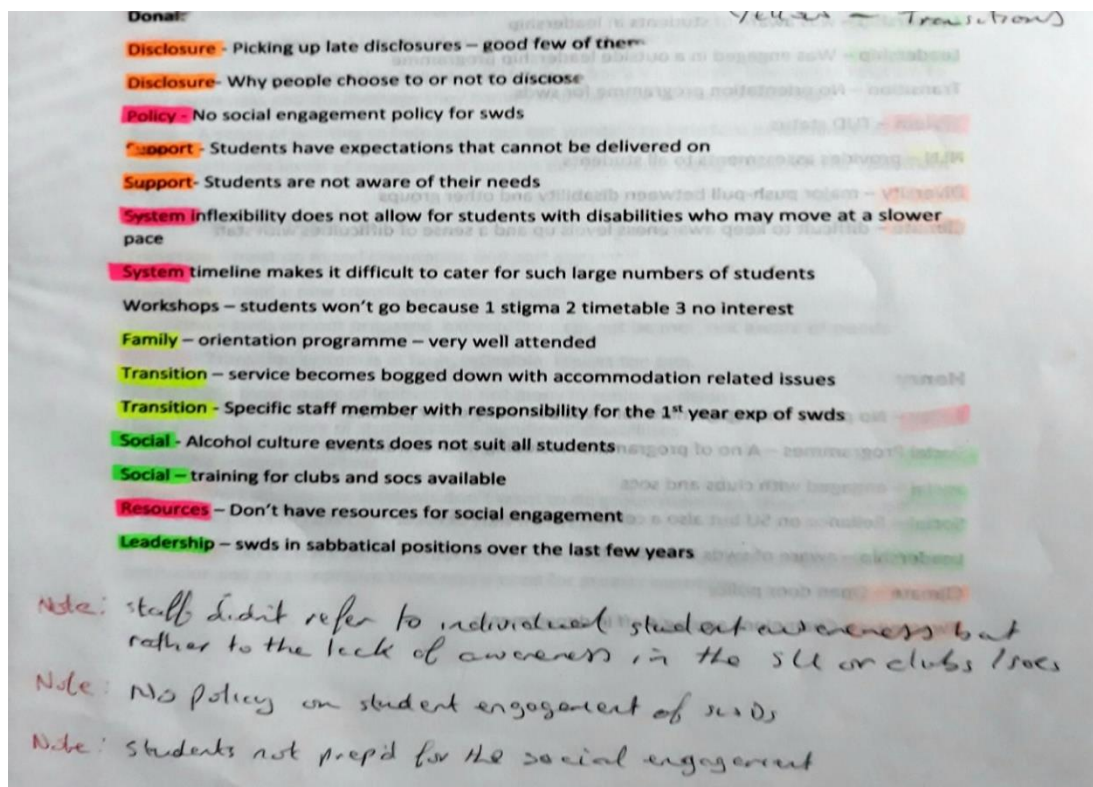 Donal:
Yellow – Transitions
Disclosure - Picking up late disclosures – good few of them
Disclosure- Why people choose to or not to disclose
Policy - No social engagement policy for swds
Support - Students have expectations that cannot be delivered on
Support- Students are not aware of their needs
System inflexibility does not allow for students with disabilities who may move at a slower
pace
System timeline makes it difficult to cater for such large numbers of students
Workshops – students won't go because 1 stigma 2 timetable 3 no interest
Family – orientation programme – very well attended
Transition – service becomes bogged down with accommodation related issues
Transition - Specific staff member with responsibility for the 1st year exp of swds
Social - Alcohol culture events does not suit all students
Social – training for clubs and socs available
Resources – Don't have resources for social engagement
Leadership – swds in sabbatical positions over the last few years
Note: staff didn't refer to individual student awareness but
rather to the lack of awareness in the SU or clubs /socs
Note: No policy on student engagement of swDs
Note: students not prep'd for the social engagement